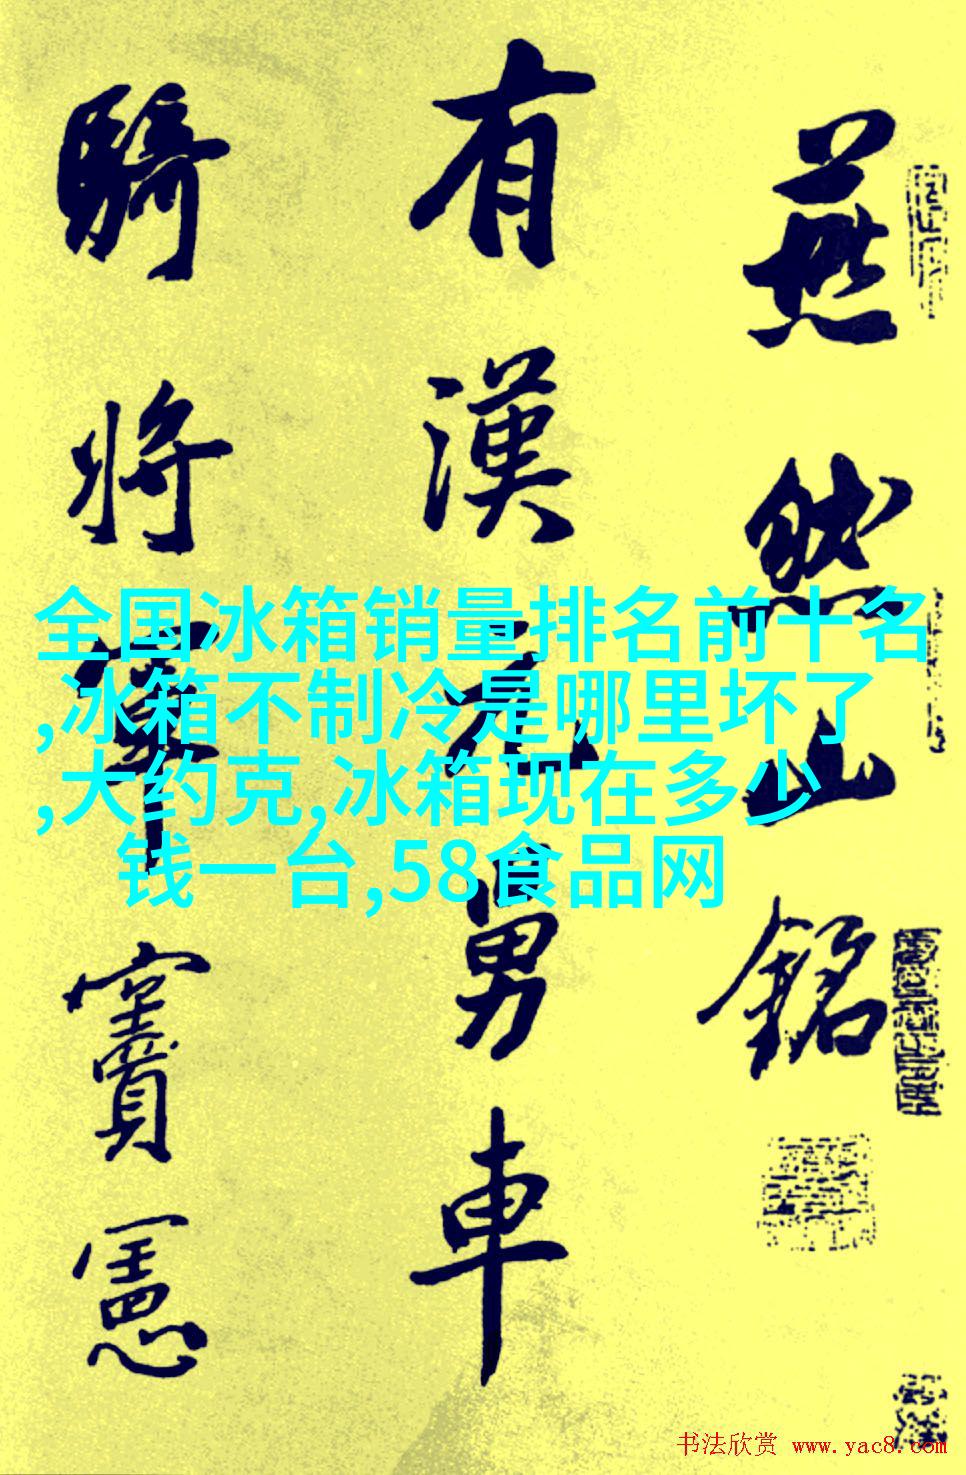 燕然山銘
有漢元舅車
騎將軍竇憲
全国冰箱销量排名前十名
,冰箱不制冷是哪里坏了
,大约克,冰箱现在多少
钱一台,58食品网
书法欣赏 www.yac8.com